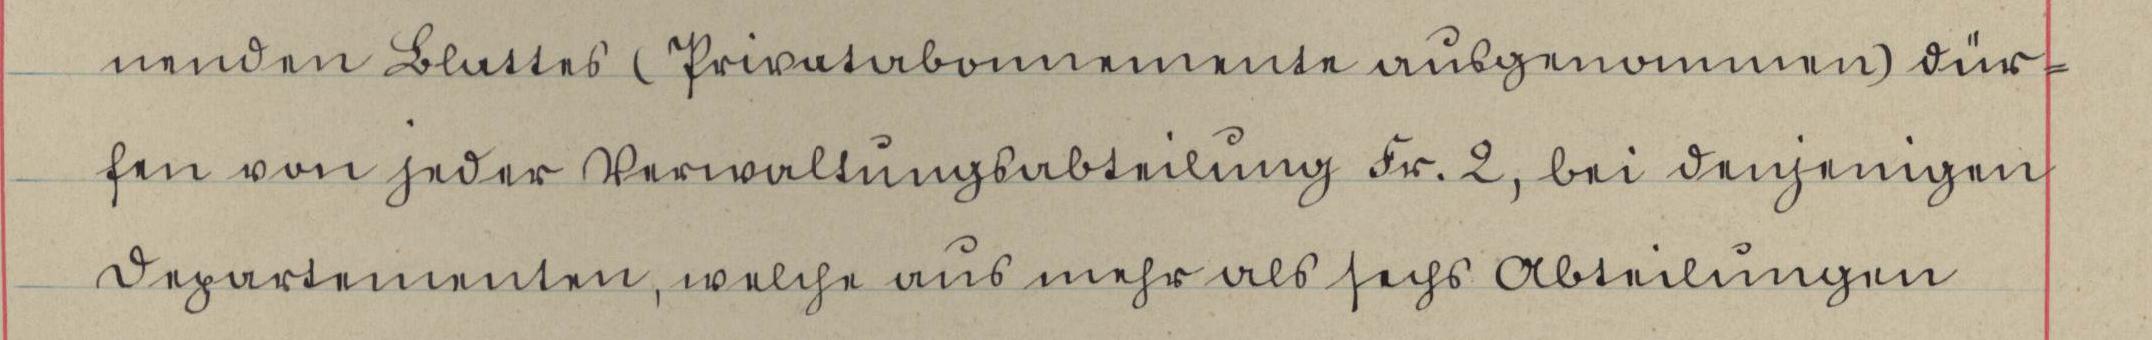 nenden Blattes (Privatabonnemente ausgenommen) dür=
fen von jeder Verwaltungsabteilung Fr. 2, bei denjenigen
Departementen, welche aus mehr als sechs Abteilungen